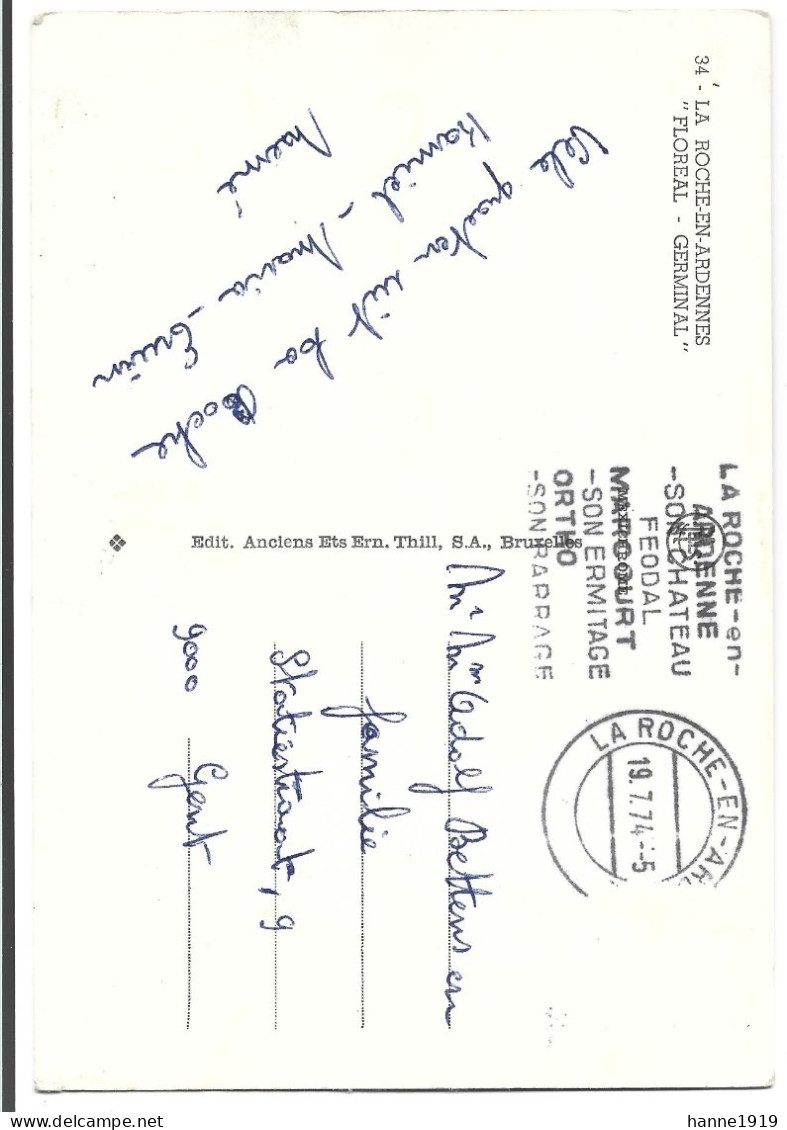 34 - LA ROCHE-EN-ARDENNES
"FLOREAL - GERMINAL"
Vele groeten uit La Roche
Kamiel - Maria - Erwin
Noëmé
Edit. Anciens Ets Ern. Thill, S.A., Bruxelles
LA ROCHE-en-
ARDENNE
-SON CHATEAU
FEODAL
MARCOURT
-SON ERMITAGE
ORTHO
-SON BARRAGE
LA ROCHE-EN-AR
19.7.74 -5
Mr Mm Adolf Bettens en
familie
Statiestraat, 9
9000 Gent
hanne1919